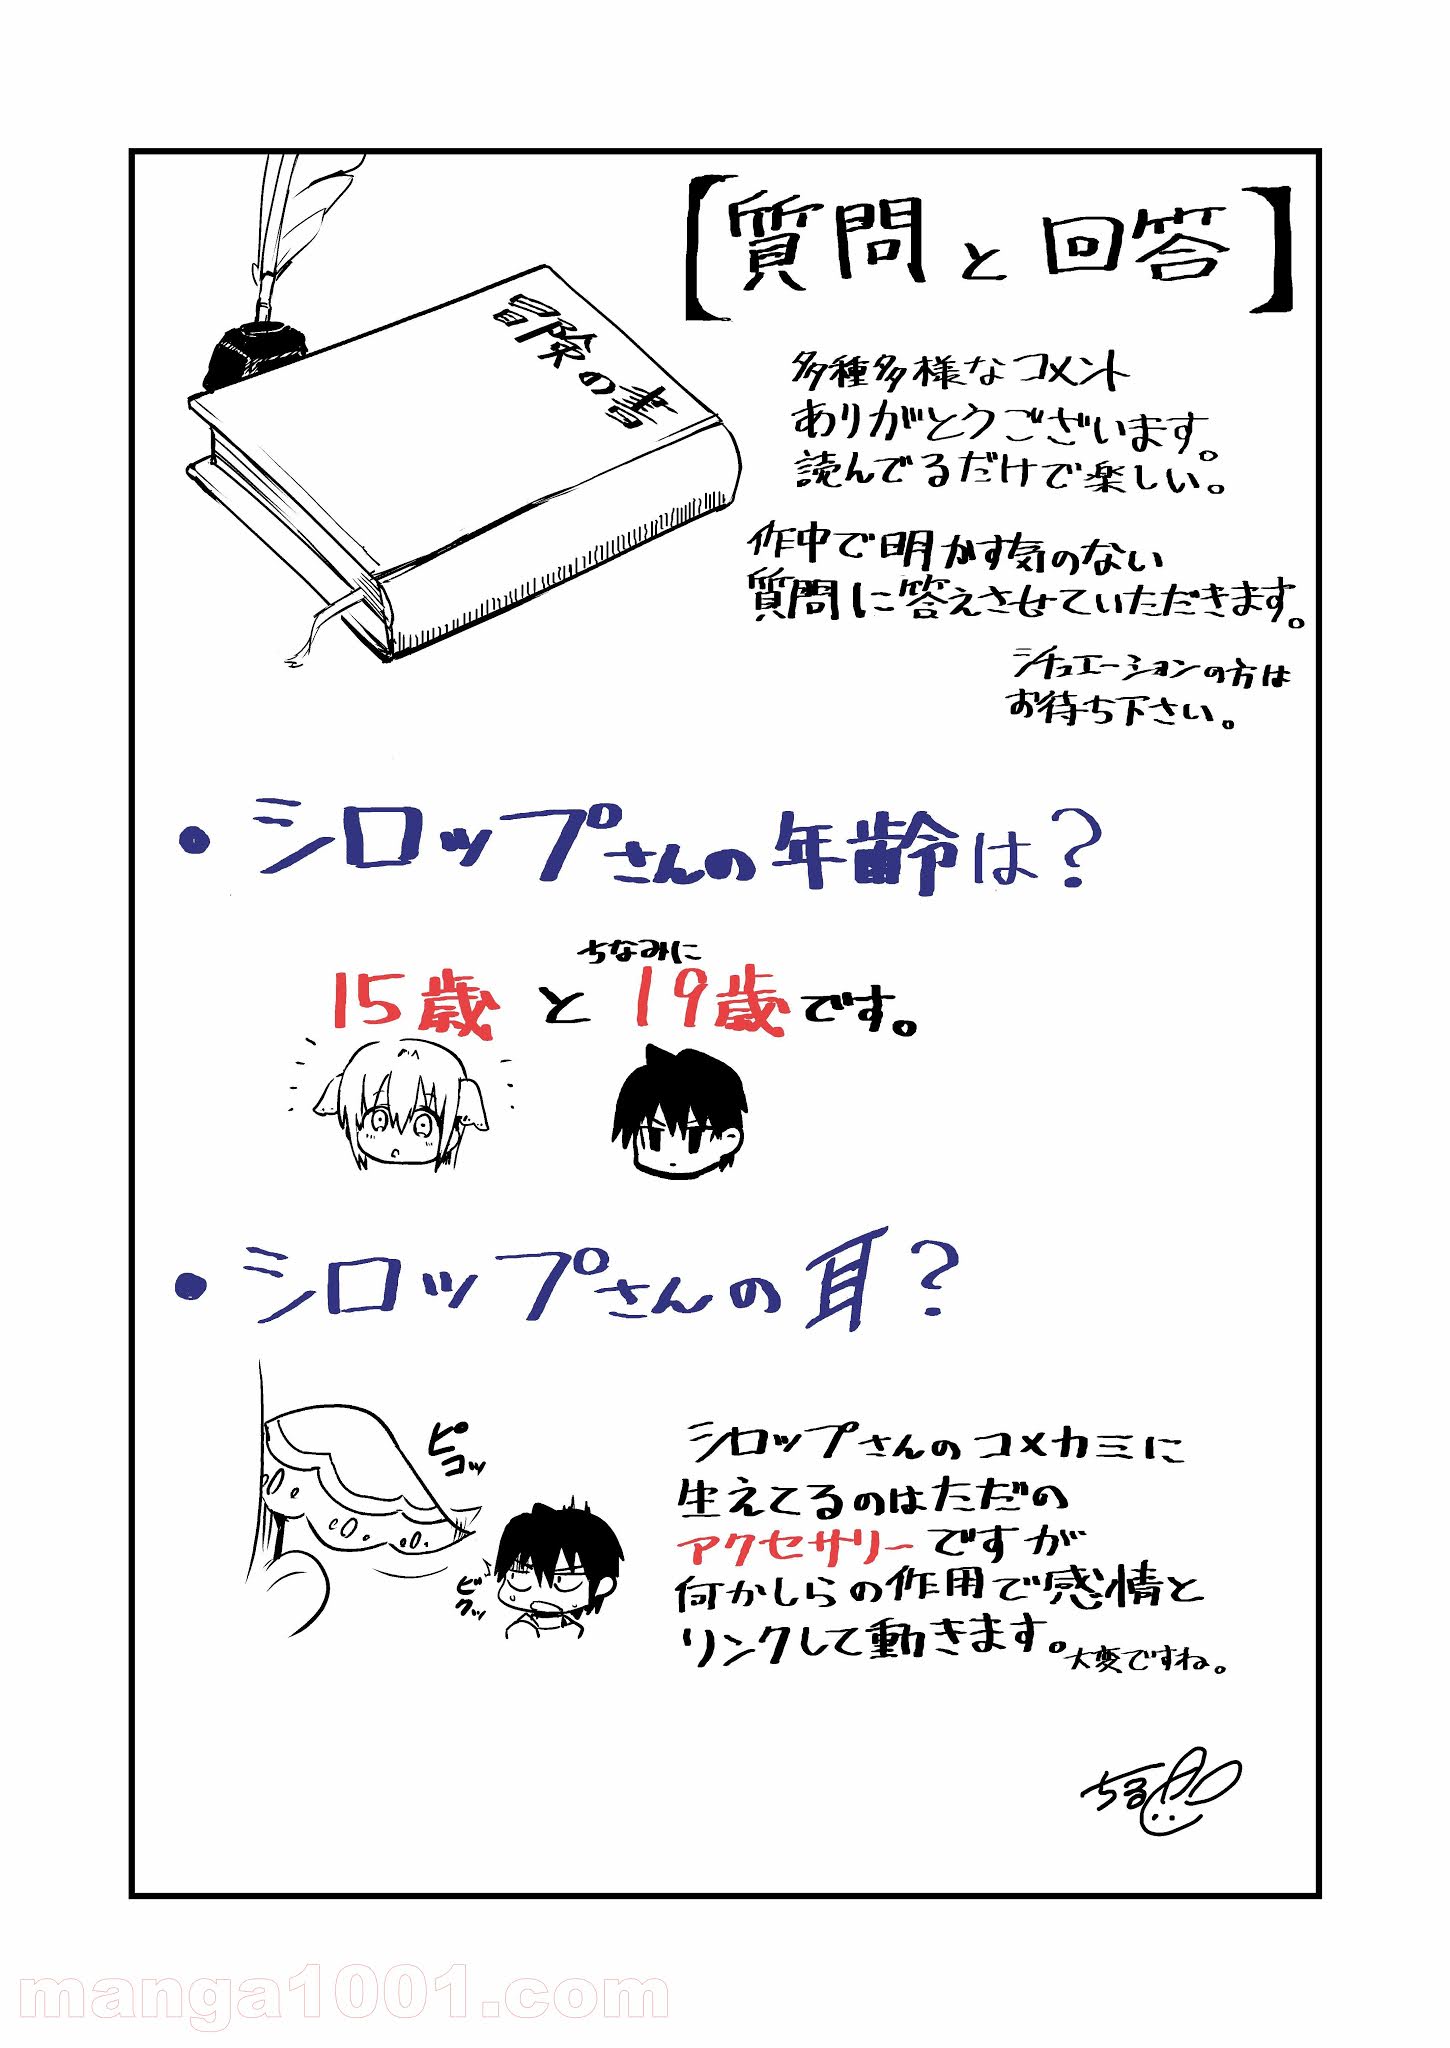 【質問と回答】
冒険の書
多種多様なコメント
ありがとうございます。
読んでるだけで楽しい。
作中で明かす気のない
質問に答えさせていただきます。
シチュエーションの方は
お待ち下さい。
・シロップさんの年齢は?
ちなみに
15歳と19歳です。
・シロップさんの耳?
ピコッ
ビクッ
シロップさんのコメカミに
生えてるのはただの
アクセサリーですが
何かしらの作用で感情と
リンクして動きます。大変ですね。
manga1001.com